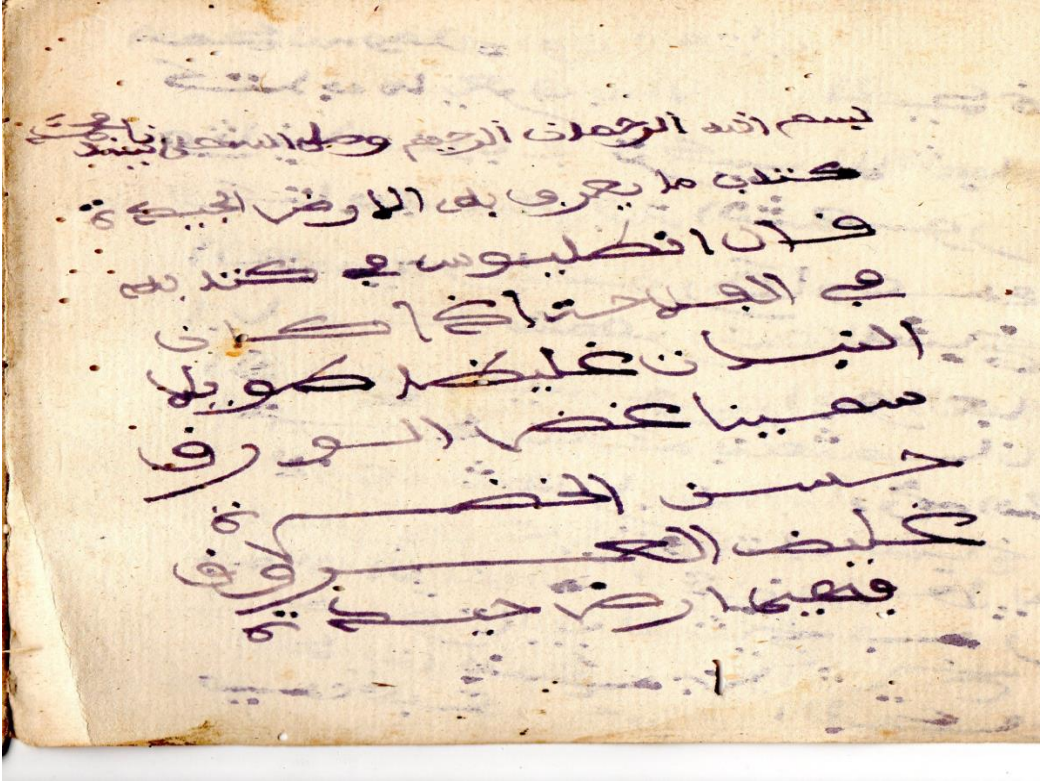 بسم الله الرحمان الرحيم وصلى الله على
كتاب ما يعرف به الارض الجيدة
قال انطليوس في كتابه
في الفلاحة اذا كان
النبات غليظا طويلا
سمينا غض الورق
حسن الخضرة
غليض العروق
فتعينها ارض جيدة